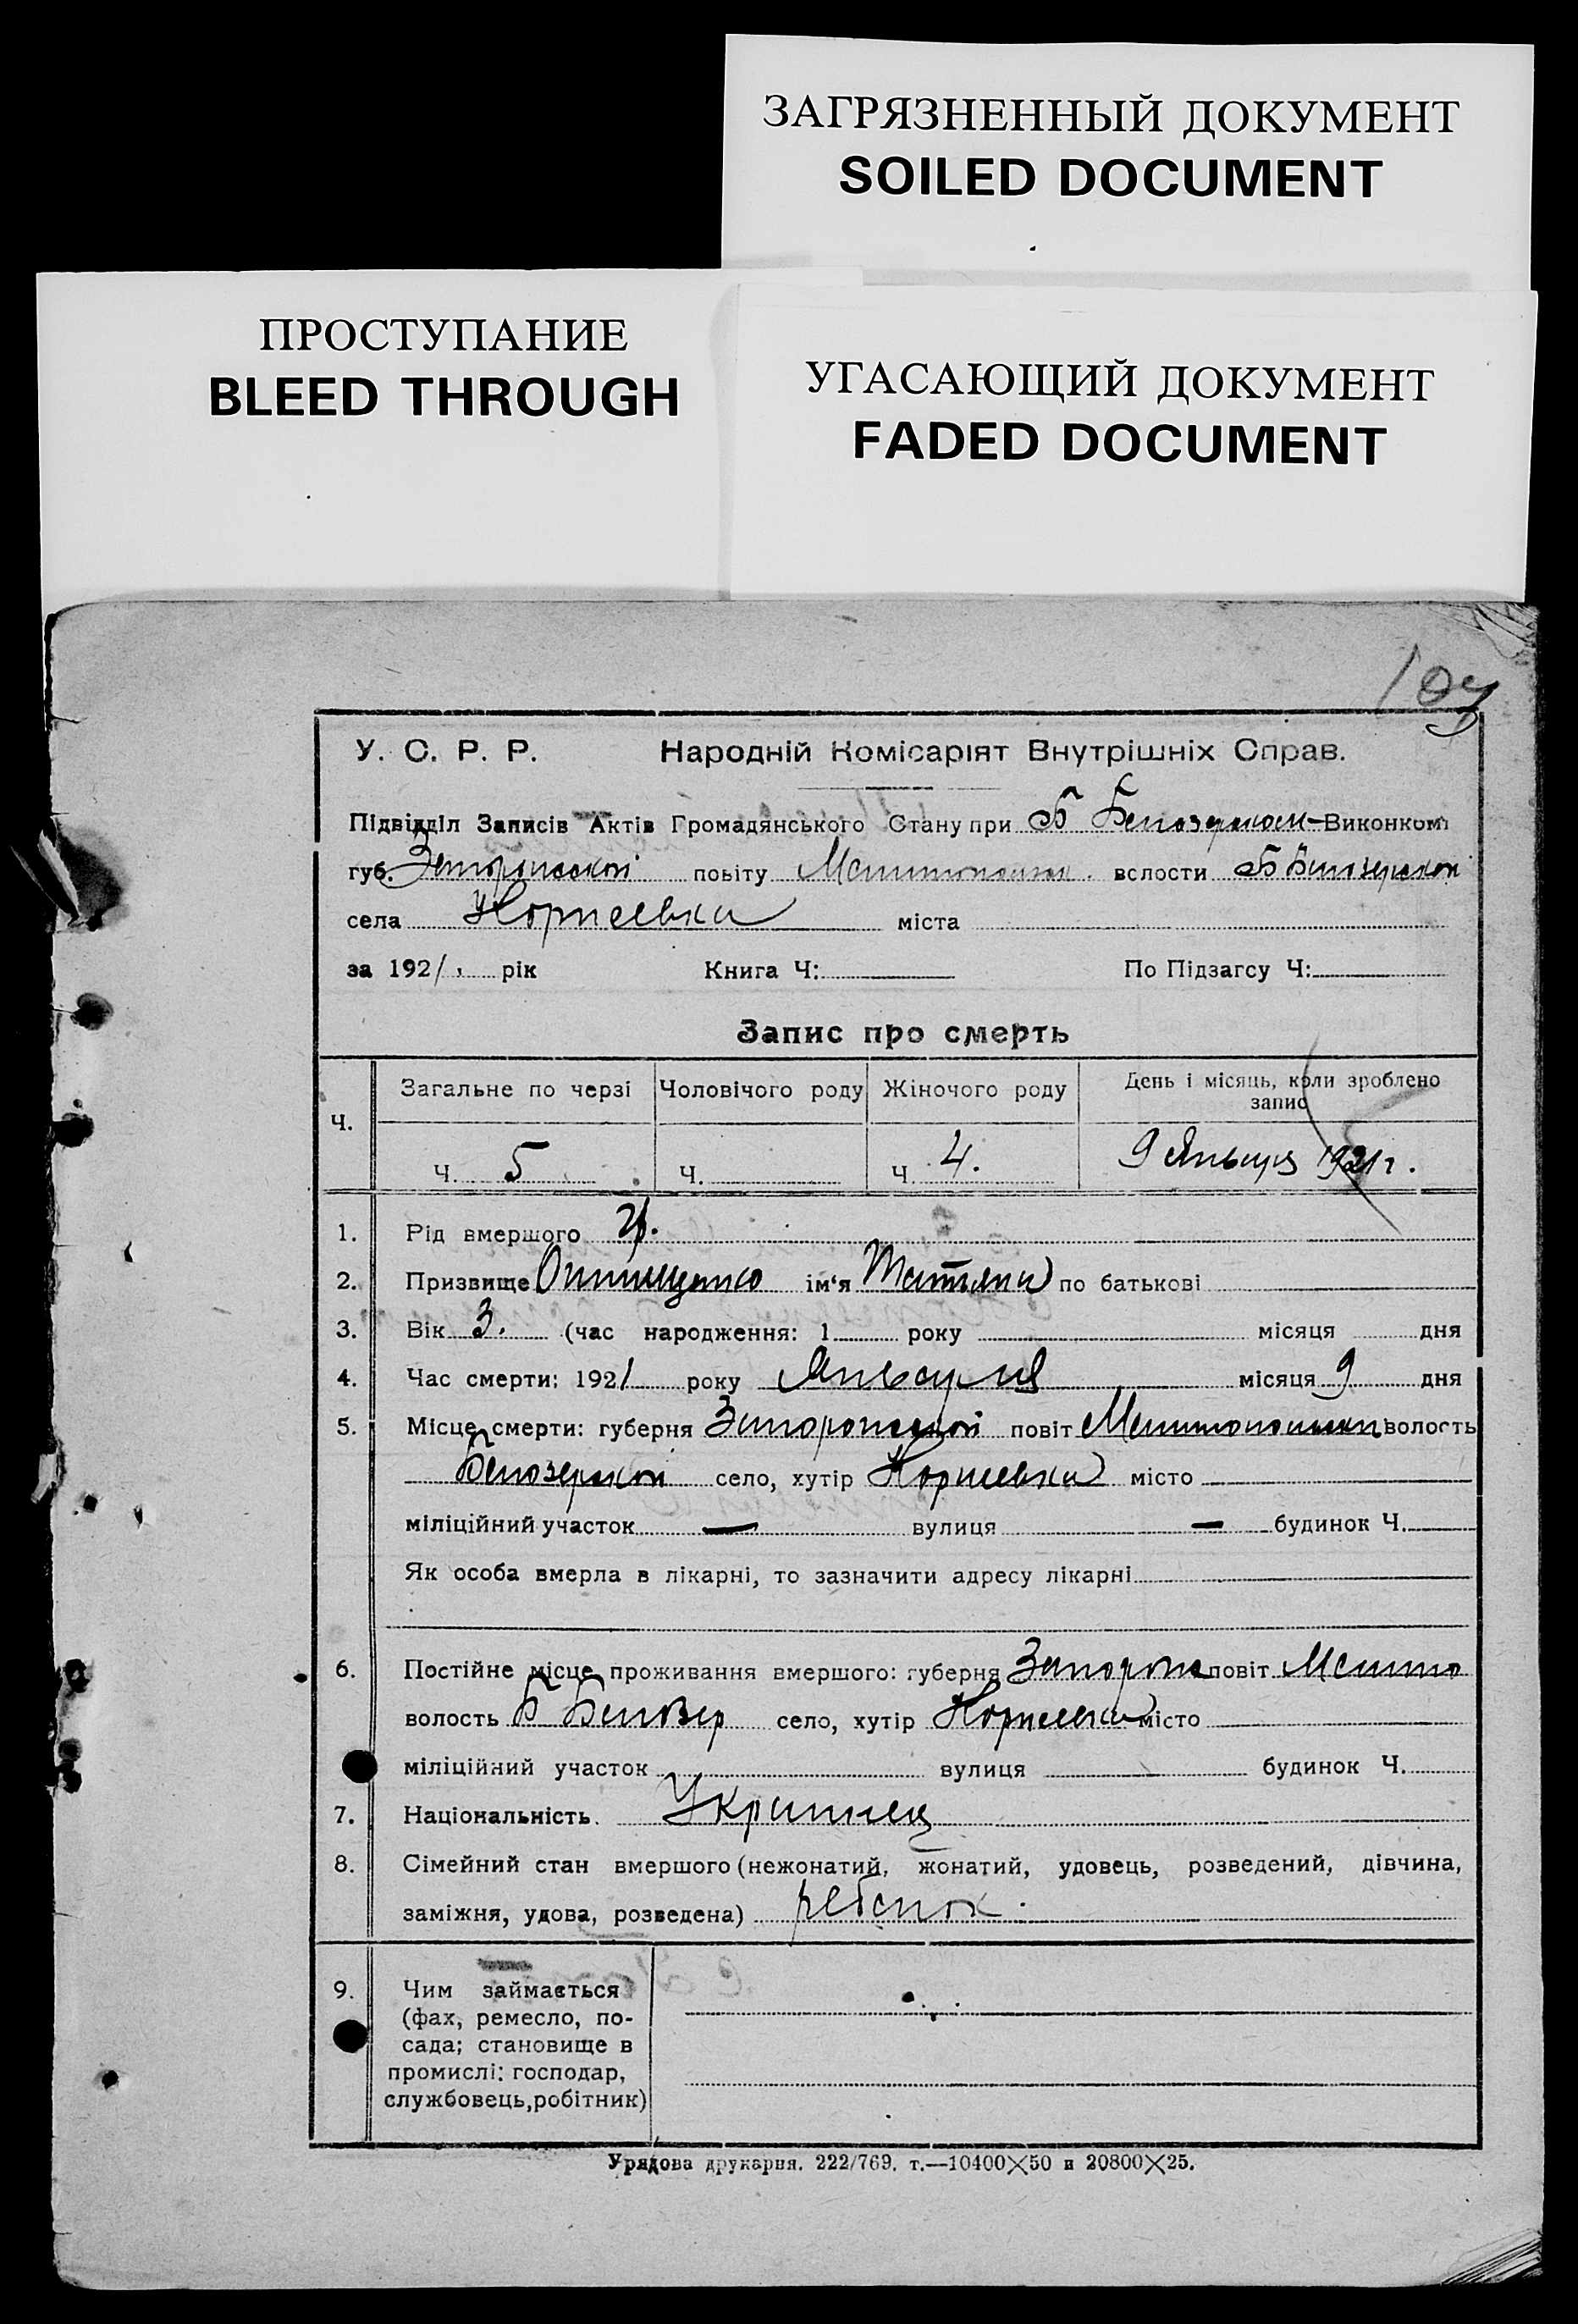 ЗАГРЯЗНЕННЫЙ ДОКУМЕНТ
SOILED DOCUMENT
ПРОСТУПАНИЕ
BLEED THROUGH
УГАСАЮЩИЙ ДОКУМЕНТ
FADED DOCUMENT
У. С. Р. Р. Народній Комісаріят Внутрішніх Справ.
Підвідділ Записів Актів Громадянського Стану при Б Белозерском Виконкомі
губ. Запорожской повіту Мелитопольск. волости Б Белозерской
села Корнеевка міста
за 1921 рік Книга Ч: По Підзагсу Ч:
Запис про смерть
Ч. Загальне по черзі Чоловічого роду Жіночого роду День і місяць, коли зроблено запис
Ч. 5 Ч. Ч. 4. 9 Января 1921 г.
1. Рід вмершого
2. Призвище Онищенко ім'я Татьяна по батькові
3. Вік 3. (час народження: 1 року місяця дня
4. Час смерти: 1921 року Января місяця 9 дня
5. Місце смерти: губерня Запорожской повіт Мелитопольск волость
Белозерской село, хутір Корнеевка місто
міліційний участок — вулиця — будинок Ч.
Як особа вмерла в лікарні, то зазначити адресу лікарні
6. Постійне місце проживання вмершого: губерня Запорож повіт Мелито
волость Б Белозер село, хутір Корнеевка місто
міліційний участок вулиця будинок Ч.
7. Національність. Украинец
8. Сімейний стан вмершого (нежонатий, жонатий, удовець, розведений, дівчина,
заміжня, удова, розведена) ребенок.
9. Чим займається
(фах, ремесло, по-
сада; становище в
промислі: господар,
службовець, робітник)
Урядова друкарня. 222/769. т.—10400×50 и 20800×25.